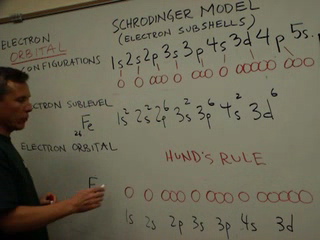 SCHRODINGER MODEL
(ELECTRON SUBSHELLS)
ELECTRON
ORBITAL
CONFIGURATIONS
1s 2s 2p 3s 3p 4s 3d 4p 5s
ELECTRON SUBLEVEL
₂₆Fe 1s² 2s² 2p⁶ 3s² 3p⁶ 4s² 3d⁶
ELECTRON ORBITAL
HUND'S RULE
1s 2s 2p 3s 3p 4s 3d